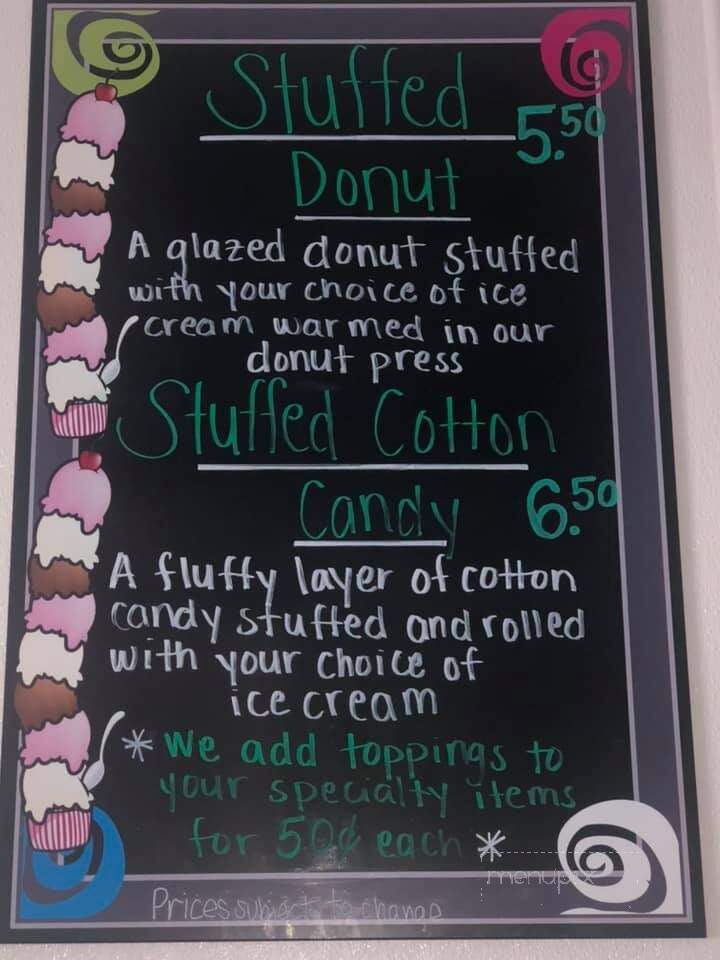 Stuffed
5.50
Donut
A glazed donut stuffed
with your choice of ice
cream warmed in our
donut press
Stuffed Cotton
Candy 6.50
A fluffy layer of cotton
candy stuffed and rolled
with your choice of
ice cream
* We add toppings to
your specialty items
for 50¢ each *
menupix
Prices subject to change